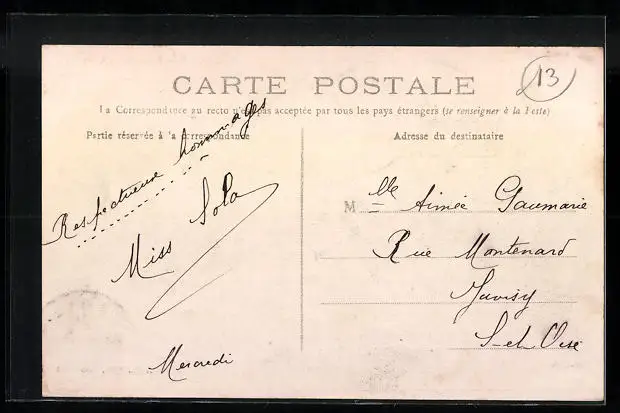 CARTE POSTALE
13
La Correspondance au recto n'est pas acceptée par tous les pays étrangers (se renseigner à la Poste)
Partie réservée à la correspondance
Respectueux hommages
Miss Lola
Mercredi
Adresse du destinataire
Mlle Aimée Gaumarie
Rue Montenard
Juvisy
S-et Oise